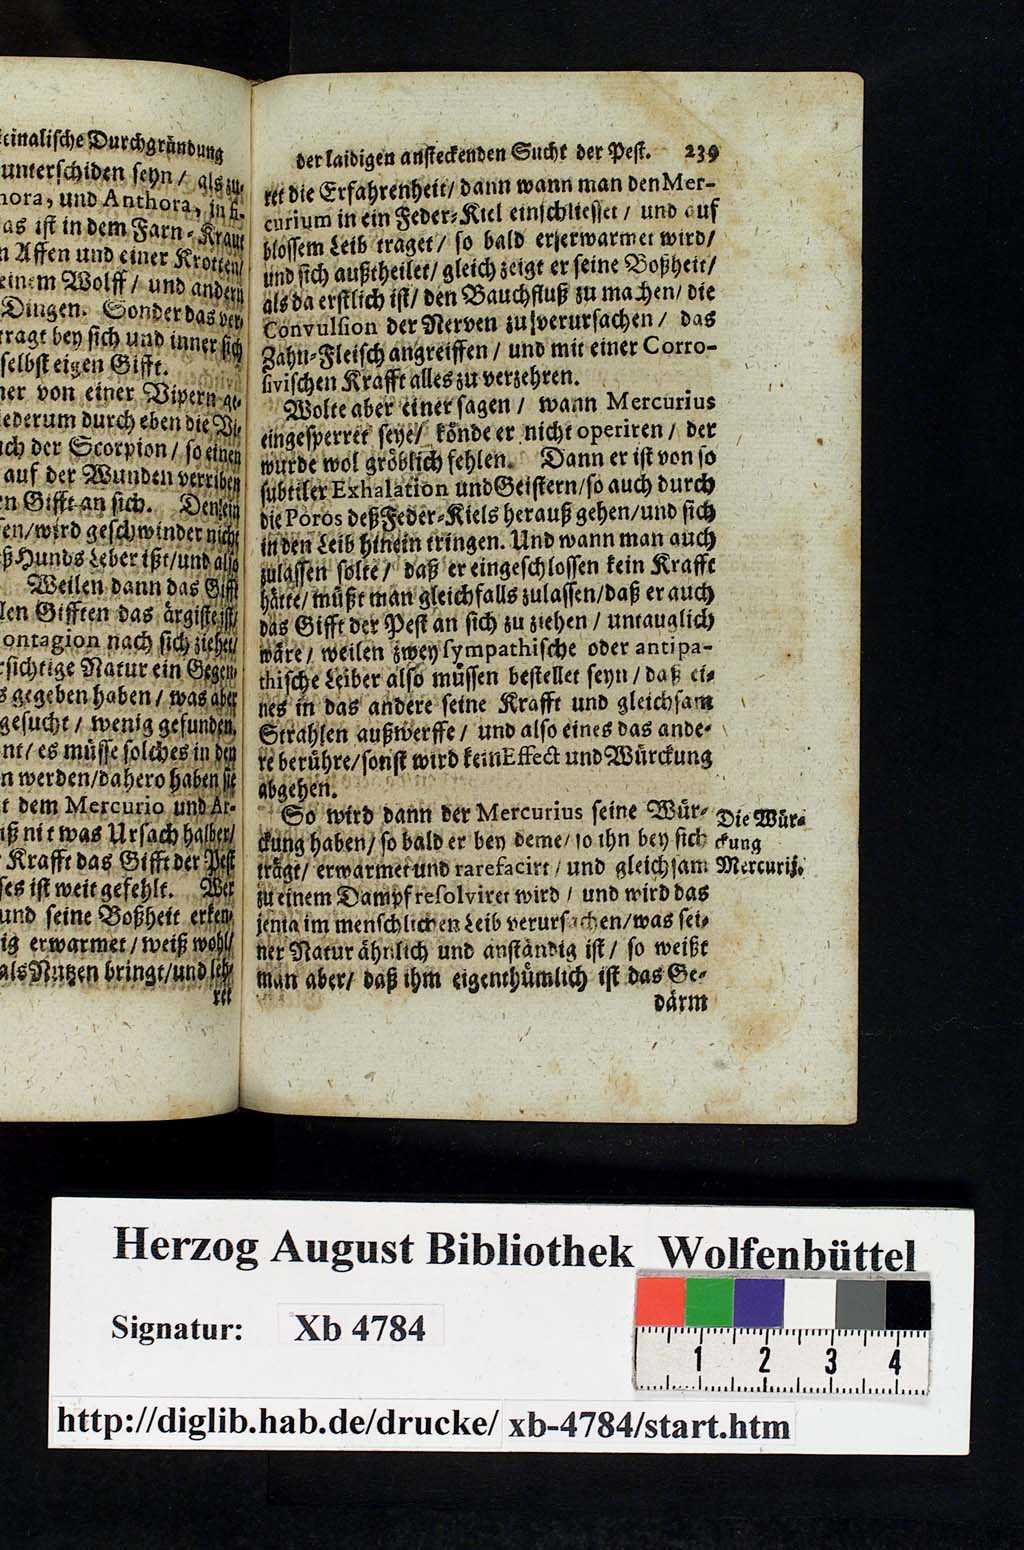 icinalische Durchgründung
unterschiden seyn / als zu,
hora, und Anthora, in si-
as ist in dem Farn-Kraut
n Affen und einer Krotten/
einem Wolff / und andern
Dingen. Sonder das ver-
tragt bey sich und inner sich
selbst eigen Gifft.
ner von einer Vipern ge-
iederum durch eben die Vi-
uch der Scorpion / so einen
auf der Wunden verriben
en Gifft an sich. Den ein
en/wird geschwinder nicht
ß Hunds Leber ißt/und also
Weilen dann das Gifft
len Gifften das ärgiste ist/
ontagion nach sich ziehet/
rsichtige Natur ein Gegen-
s gegeben haben / was aber
gesucht / wenig gefunden,
nt/ es müsse solches in den
n werden/dahero haben sie
t dem Mercurio und Ar-
iß nit was Ursach halber/
Krafft das Gifft der Pest
ses ist weit gefehlt. Wer
und seine Boßheit erken-
ig erwarmet / weiß wohl/
als Nutzen bringt/und leh-
ret
der laidigen ansteckenden Sucht der Pest. 239
ret die Erfahrenheit/ dann wann man den Mer-
curium in ein Feder-Kiel einschliesset / und auf
blossem Leib traget / so bald er erwarmet wird/
und sich außtheilet/ gleich zeigt er seine Boßheit/
als da erstlich ist/ den Bauchfluß zu machen/ die
Convulsion der Nerven zu verursachen / das
Zahn-Fleisch angreiffen / und mit einer Corro-
sivischen Krafft alles zu verzehren.
Wolte aber einer sagen / wann Mercurius
eingesperret seye/ könde er nicht operiren / der
wurde wol gröblich fehlen. Dann er ist von so
subtiler Exhalation und Geistern/so auch durch
die Poros deß Feder-Kiels herauß gehen/und sich
in den Leib hinein tringen. Und wann man auch
zulassen solte / daß er eingeschlossen kein Krafft
hätte/ müßt man gleichfalls zulassen/daß er auch
das Gifft der Pest an sich zu ziehen / untauglich
wäre / weilen zwey sympathische oder antipa-
thische Leiber also müssen bestellet seyn / daß ei-
nes in das andere seine Krafft und gleichsam
Strahlen außwerffe / und also eines das ande-
re berühre/sonst wird kein Effect und Würckung
abgehen.
So wird dann der Mercurius seine Wür-
ckung haben/ so bald er bey deme/ so ihn bey sich
trägt/ erwarmet und rarefacirt / und gleichsam
zu einem Dampf resolviret wird / und wird das
jenig im menschlichen Leib verursachen/was sei-
ner Natur ähnlich und anständig ist / so weißt
man aber/ daß ihm eigenthümlich ist das Ge-
därm
Die Wür-
ckung
Mercurij.
Herzog August Bibliothek Wolfenbüttel
Signatur: Xb 4784
1 2 3 4
http://diglib.hab.de/drucke/ xb-4784/start.htm